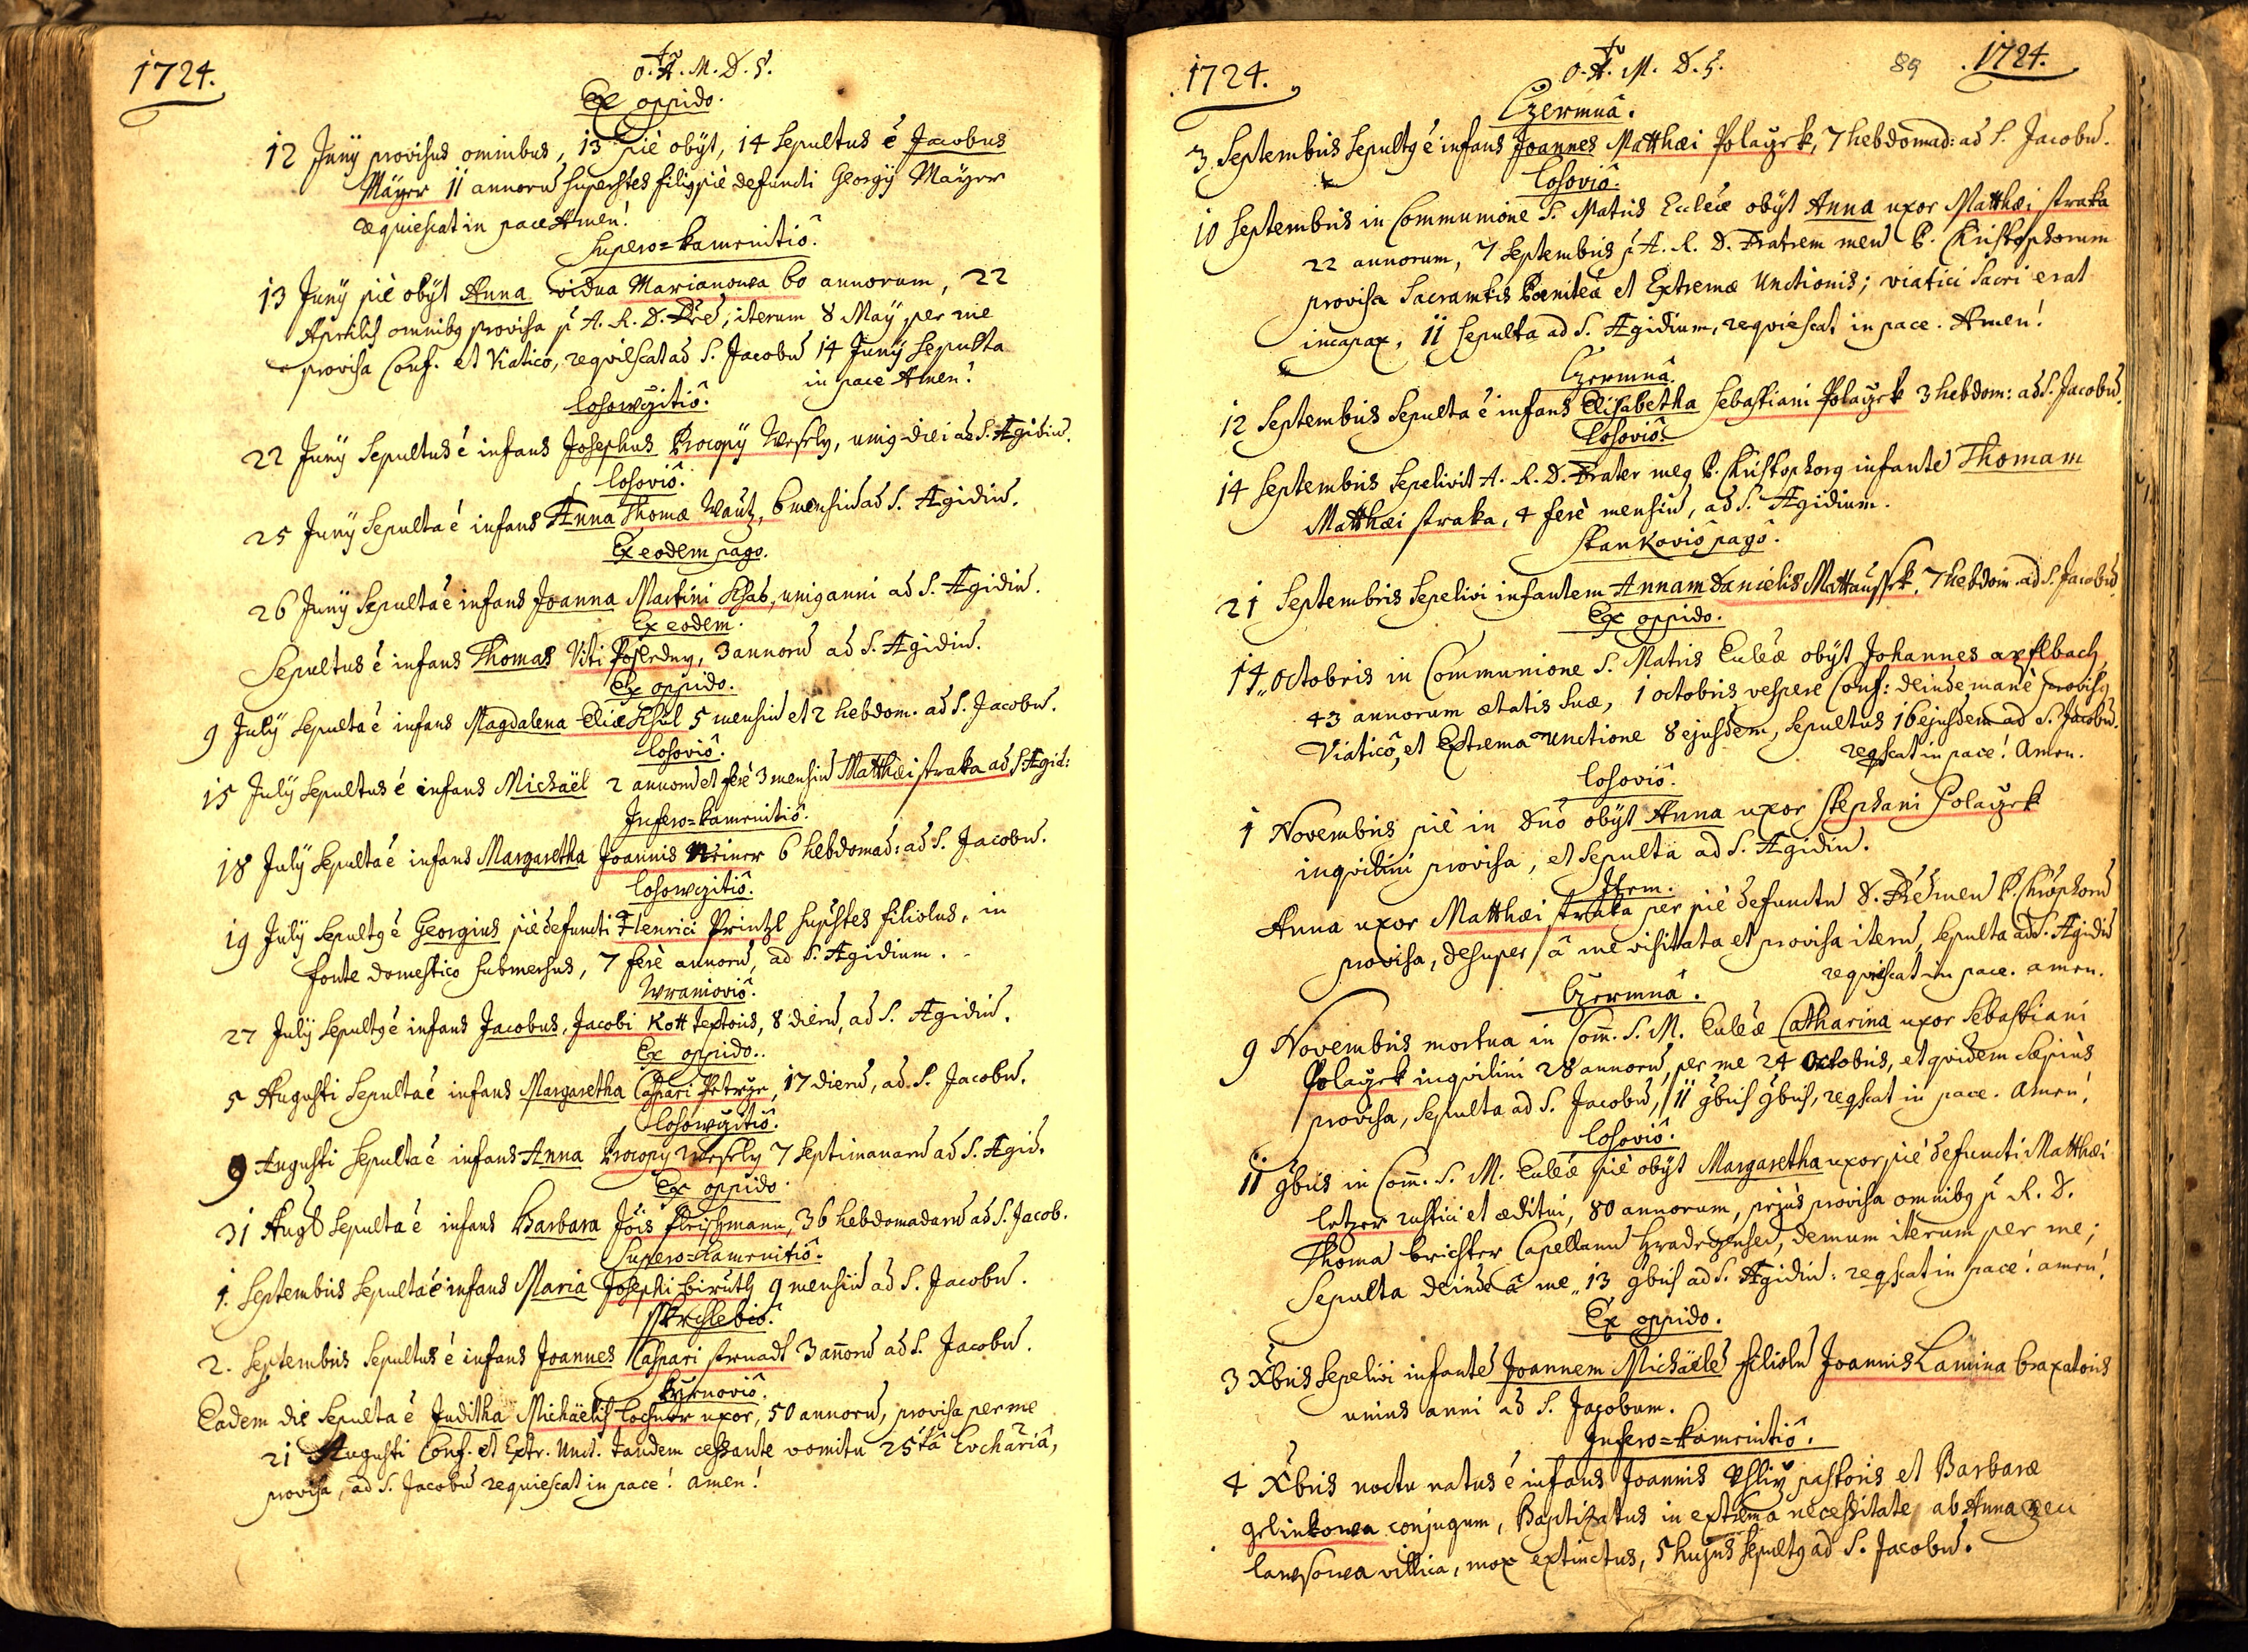 1724.
O. A. M. D. G.
Ex oppido.
12 Junÿ provisus omnibus, 13 piè obÿt, 14 Sepultus ē Jacobus
Mäÿer 11 annorū superstes filiꝰ piè defuncti Georgÿ Mäÿer
requiescat in pace Amen!
Supero=Kamenitiô.
13 Junÿ piè obÿt Anna vidua Marianowa 60 annorum, 22
Aprilis omnibꝰ provisa p A. R. D. Prēd; iterum 8 Maÿ per me
provisa Conf. et Viatico, requiescat ad S. Jacobū 14 Junÿ Sepulta
in pace Amen!
Losowczitiô.
22 Junÿ Sepultus ē infans Josephus Procopÿ Wesely, uniꝰ diei ad S. Ægidiū.
Losoviô.
25 Junÿ Sepulta ē infans Anna Thomæ Wautz, 6 mensiū ad S. Ægidiū.
Ex eodem pago.
26 Junÿ Sepulta ē infans Joanna Martini Schab, uniꝰ anni ad S. Ægidiū.
Ex eodem.
Sepultus ē infans Thomas Viti Posledny, 3 annorū ad S. Ægidiū.
Ex oppido.
9 Julÿ Sepulta ē infans Magdalena Eliæ Schul 5 mensiū et 2 hebdom. ad S. Jacobū.
Losoviô.
15 Julÿ Sepultus ē infans Michaël 2 annorū et ferè 3 mensiū Matthæi Straka ad S. Ægid:
Infero=Kamenitiô.
18 Julÿ Sepulta ē infans Margaretha Joannis Weiner 6 hebdomad: ad S. Jacobū.
Losowczitiô.
19 Julÿ Sepultꝰ ē Georgius piè defuncti Henrici Printzl supstes filiolus, in
fonte domestico submersus, 7 ferè annorū, ad S. Ægidium.
Wranioviô.
27 Julÿ Sepultꝰ ē infans Jacobus, Jacobi Kott Textoris, 8 dierū, ad S. Ægidiū.
Ex oppido.
5 Augusti Sepulta ē infans Margaretha Caspari Petrze, 17 dierū, ad S. Jacobū.
Losowczitiô.
9 Augusti Sepulta ē infans Anna Procopÿ Wesely 7 Septimanarū ad S. Ægid.
Ex oppido.
31 Aug Sepulta ē infans Barbara Jõis Fleischmann, 36 hebdomadarū ad S. Jacob.
Supero=Kamenitiô.
1. Septembris Sepulta ē infans Maria Josephi Birutz 9 mensiū ad S. Jacobū.
2. Septembris Sepultus ē infans Joannes Caspari Strnadt 3 an̄orū ad S. Jacobū.
Eadem die Sepulta ē Juditha Michäelis Lochner uxor, 50 annorū, provisa per me
21 Augusti Conf. et Extr. Unct. tandem cessante vomitu 25ta Eucharia,
provisa, ad S. Jacobū requiescat in pace! Amen!
1724.
O. A. M. D. G.
89 1724.
Czermnâ.
3. Septembris Sepultꝰ ē infans Joannes Matthæi Polaczek, 7 hebdomad: ad S. Jacobū.
Losoviô.
10 Septembris in Communione S. Matris Ecclēæ obÿt Anna uxor Matthæi Straka
22 annorum, 7 Septembris p A. R. D. Fratrem meū P. Christophorum
provisa Sacramtis Pœnitēa et Extremæ Unctionis; viatici Sacri erat
incapax, 11 Sepulta ad S. Ægidium, requiescat in pace. Amen!
Czermnâ.
12 Septembris Sepulta ē infans Elisabetha Sebastiani Polaczek 3 hebdom: ad S. Jacobū.
Losoviô.
14 Septembris Sepelivit A. R. D. Frater meꝰ P. Christophorꝰ infantē Thomam
Matthæi Straka, 4 ferè mensiū, ad S. Ægidium.
Stankoviô pagô.
21 Septembris Sepelivi infantem Annam Danielis Mattaussek, 7 hebdom. ad S. Jacobū.
Ex oppido.
14 Octobris in Communione S. Matris Ecclēæ obÿt Johannes axflbach
43 annorum ætatis suæ, 1 octobris vespere Conf: deinde manè provisꝰ
Viaticô, et Extrema Unctione 8 ejusdem, Sepultus 16 ejusdem ad S. Jacobū.
reqscat in pace! Amen.
Losoviô.
1 Novembris piè in Dnō obÿt Anna uxor Stephani Polaczek
inqvilini provisa, et Sepulta ad S. Ægidiū.
Item.
Anna uxor Matthæi Straka per piè defunctū D. Frēm meū P. Chrisophorū
provisa, desuper à me visitata et provisa iterū, Sepulta ad S. Ægidiū
requiescat in pace. amen.
Czermnâ.
9 Novembris mortua in Com̄. S. M. Ecclēæ Catharina uxor Sebastiani
Polaczek inqvilini 28 annorū, per me 24 Octobris, et qvidem sæpiùs
provisa, Sepulta ad S. Jacobū, 11 9bris, reqscat in pace. Amen!
Losoviô.
11 9bris in Com̄. S. M. Ecclēæ piè obÿt Margaretha uxor piè defuncti Matthæi
Letzer rustici et æditui, 80 annorum, priùs provisa omnibꝰ p R. D.
Thoma Brichter Capellanū Hradeczensē, demum iterum per me;
Sepulta deinde à me 13 9bris ad S. Ægidiū: reqscat in pace! amen!
Ex oppido.
3 Xbris Sepelivi infantē Joannem Michäelē filiolū Joannis Lamina braxatoris
unius anni ad S. Jacobum.
Infero=Kamenitiô.
4 Xbris noctu natus ē infans Joannis Uhlirz pastoris et Barbaræ
Gelinkowa conjugum, Baptizatus in extrema necessitate ab Anna
villica, mox extinctus, 5 hujus Sepultꝰ ad S. Jacobū.